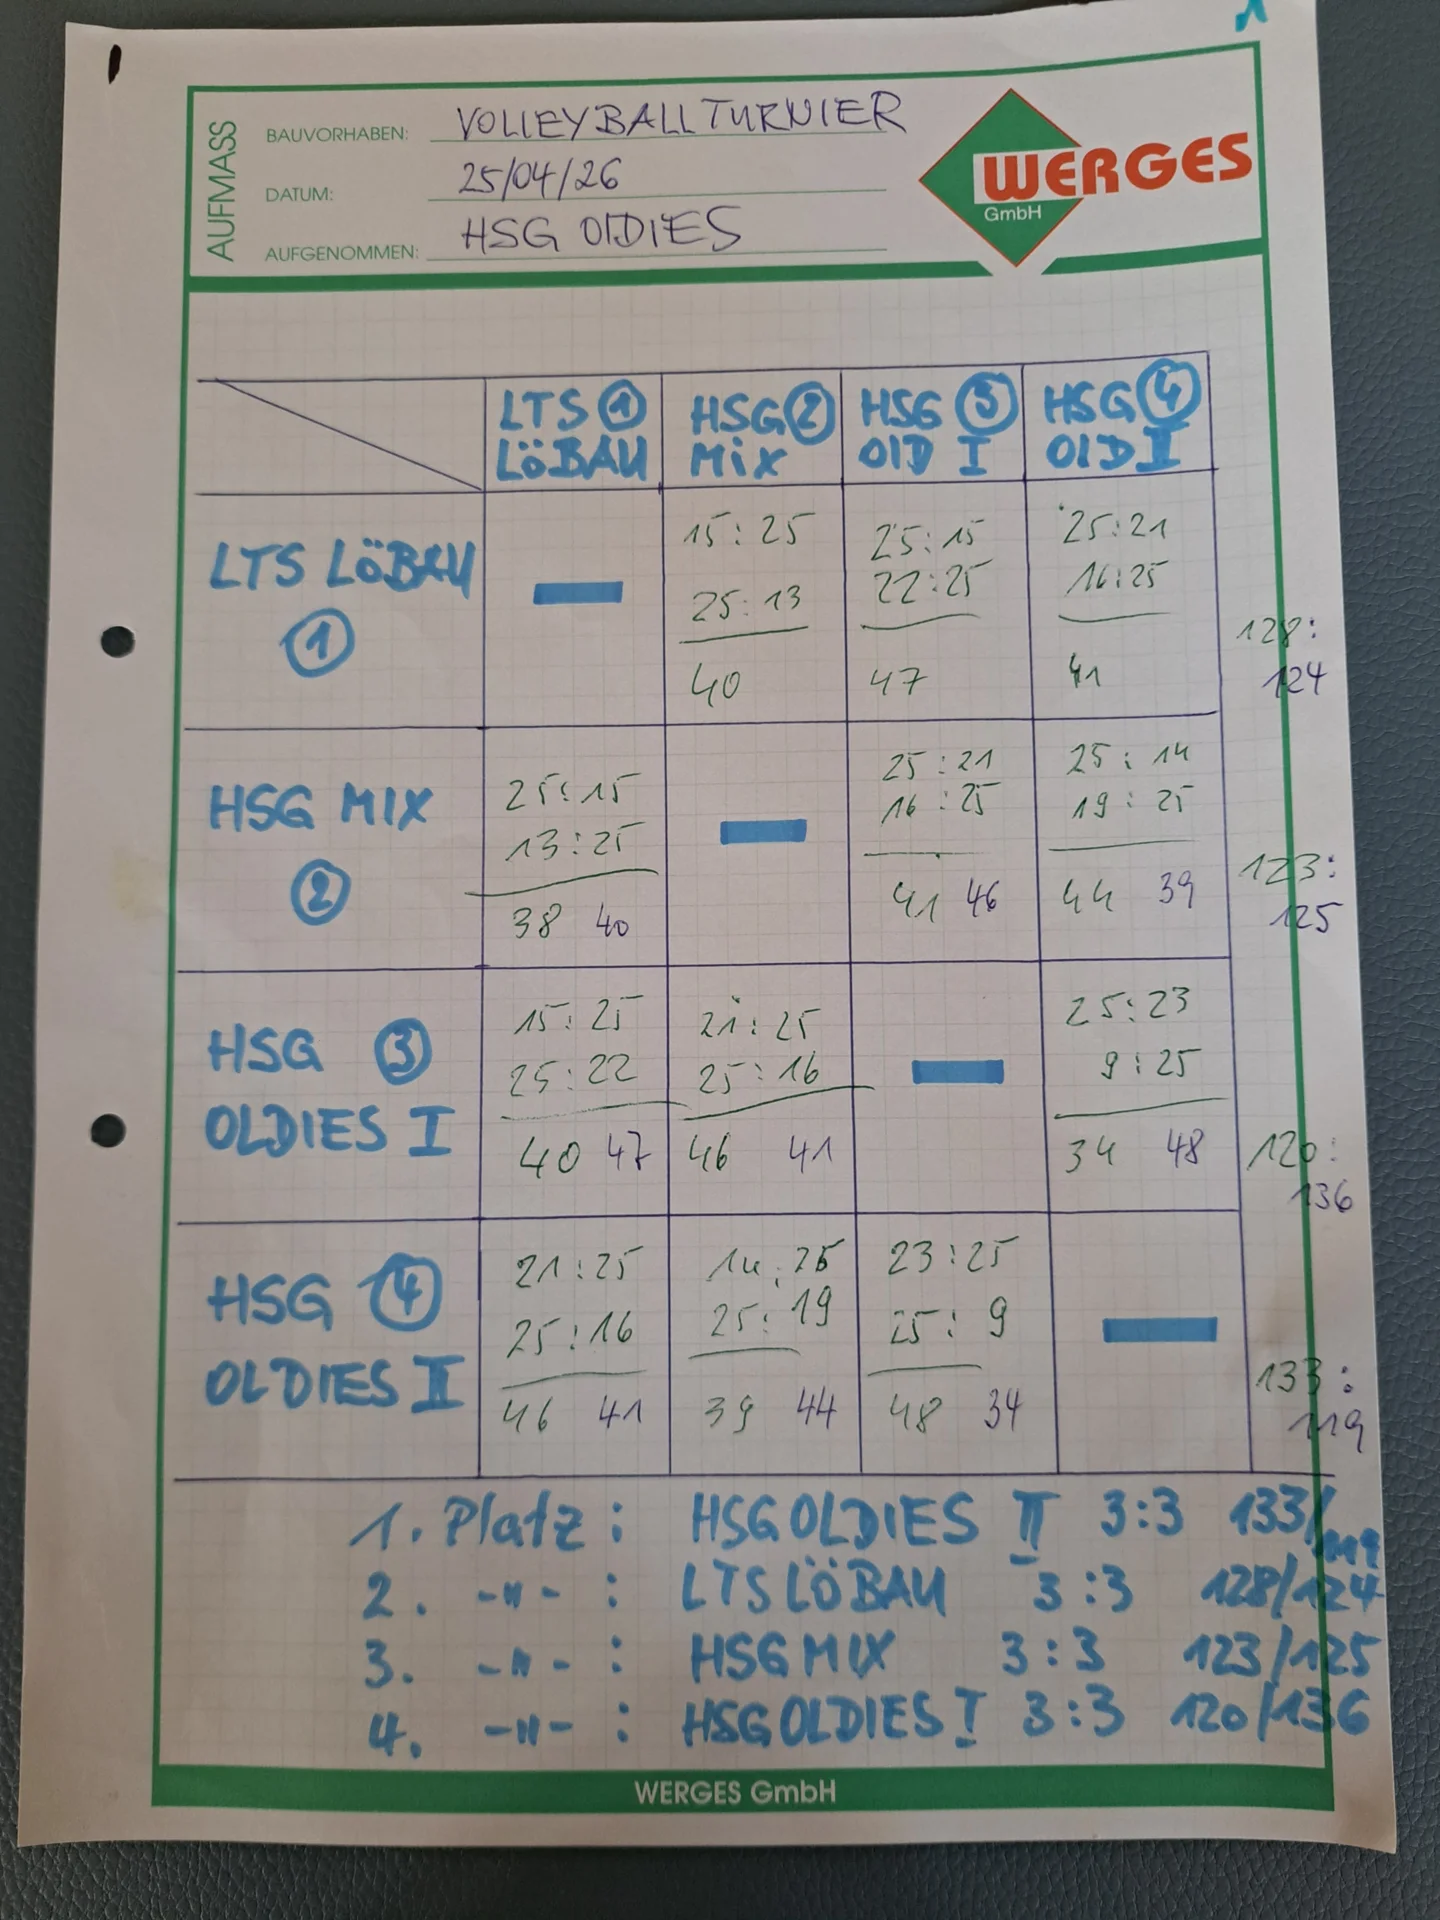 AUFMASS
BAUVORHABEN: VOLLEYBALLTURNIER
DATUM: 25/04/26
AUFGENOMMEN: HSG OLDIES
WERGES
GmbH
LTS ① HSG ② HSG ③ HSG ④
LÖBAU MiX OLD I OLD II
LTS LÖBAU
①
15:25 25:15 25:21
25:13 22:25 16:25
40 47 41
128:
124
HSG MIX
②
25:15 25:21 25:14
13:25 16:25 19:25
38 40 41 46 44 39
123:
125
HSG ③
OLDIES I
15:25 21:25 25:23
25:22 25:16 9:25
40 47 46 41 34 48
120:
136
HSG ④
OLDIES II
21:25 14:25 23:25
25:16 25:19 25:9
46 41 39 44 48 34
133:
119
1. Platz: HSG OLDIES II 3:3 133/119
2. -"- : LTS LÖBAU 3:3 128/124
3. -"- : HSG MIX 3:3 123/125
4. -"- : HSG OLDIES I 3:3 120/136
WERGES GmbH